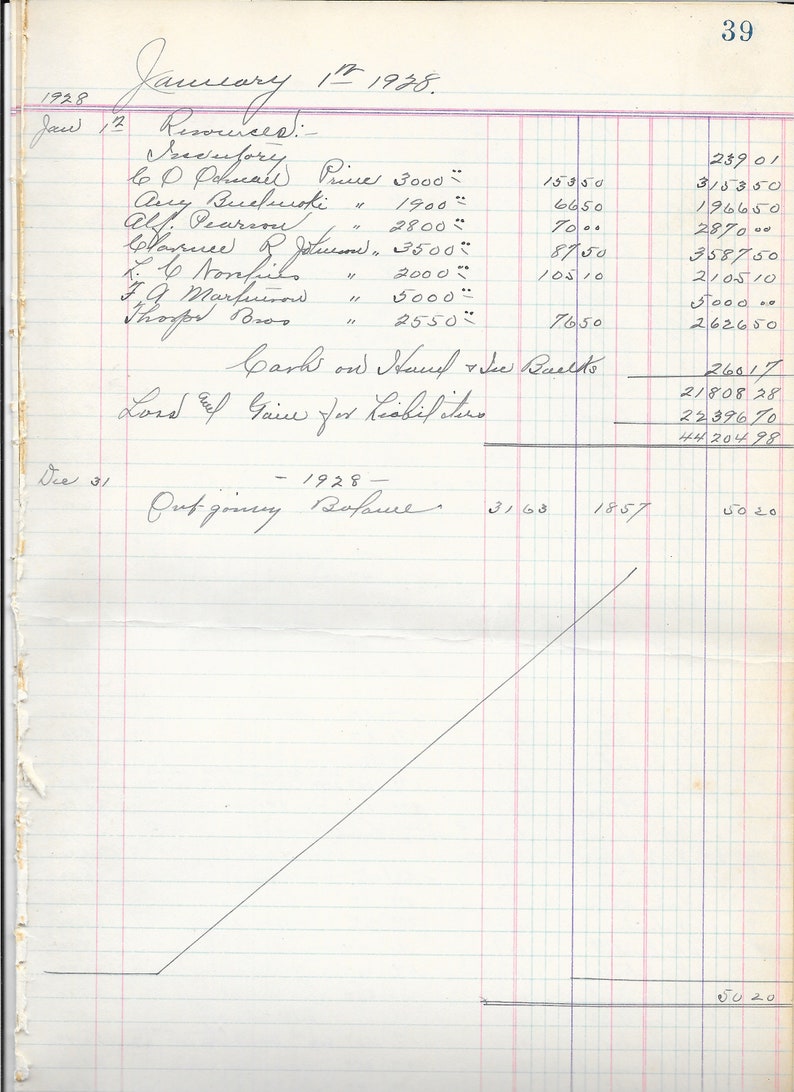 39
January 1st 1928.
1928
Jan 1st Resources:-
Inventory 239 01
C O Prine 3000 00 153 50 3153 50
Aug " 1900 00 66 50 1966 50
Alf. Pearson " 2800 00 70 00 2870 00
Clarence R Johnson " 3500 00 87 50 3587 50
L. C " 2000 00 105 10 2105 10
F A Martinson " 5000 00 5000 00
Thorpe Bros " 2550 00 76 50 2626 50
Cash on Hand & in Banks 260 17
21808 28
Loss and Gain for Liabilities 22396 70
44204 98
Dec 31 - 1928 -
Outgoing Balance 31 63 18 57 50 20
50 20